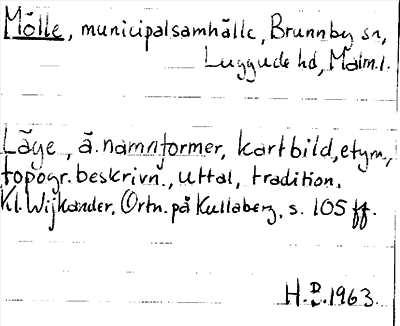 Mölle, municipalsamhälle, Brunnby sn,
Luggude hd, Malm.l.
Läge, ä. namnformer, kartbild, etym.,
topogr. beskrivn., uttal, tradition.
Kl. Wijkander. Ortn. på Kullaberg, s. 105 ff.
H.D. 1963.